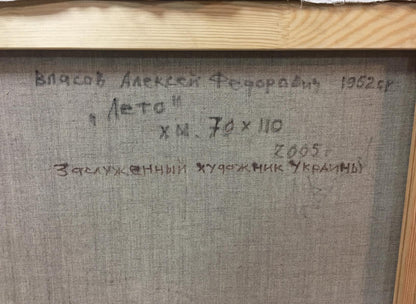 Власов Алексей Федорович 1952г.р
"Лето"
х.м. 70 х 110
2005г
Заслуженный художник Украины